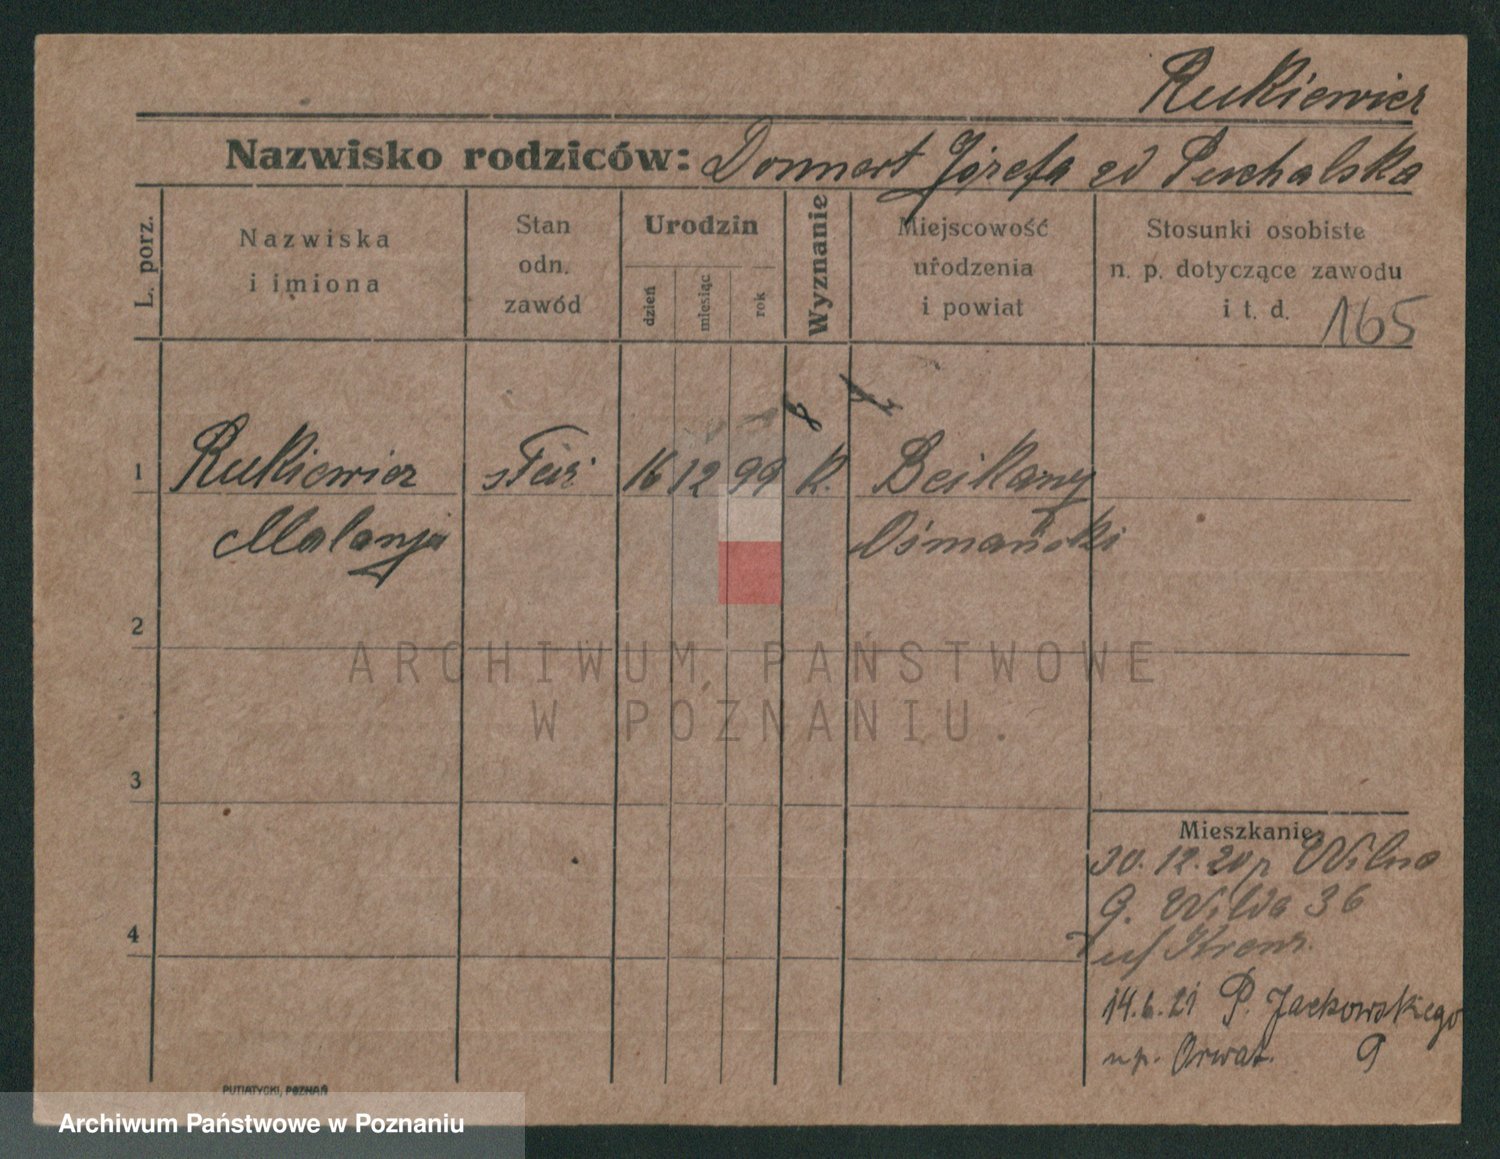 Rukiewicz
Nazwisko rodziców: Donnart Józefa zd Puchalska
L. porz.
Nazwiska
i imiona
Stan
odn.
zawód
Urodzin
dzień
miesiąc
rok
Wyznanie
Miejscowość
urodzenia
i powiat
Stosunki osobiste
n. p. dotyczące zawodu
i t. d.
165
1 Rukiewicz 16 12 99 k. Bejkany
Malanja Ośmański
2
3
4
Mieszkanie
30.12.20 p Wilno
G. Wilda 36
14.6.21 P. Jackowskiego
u p. Orwat. 9
PUTIATYCKI, POZNAŃ
ARCHIWUM PAŃSTWOWE
W POZNANIU.
Archiwum Państwowe w Poznaniu